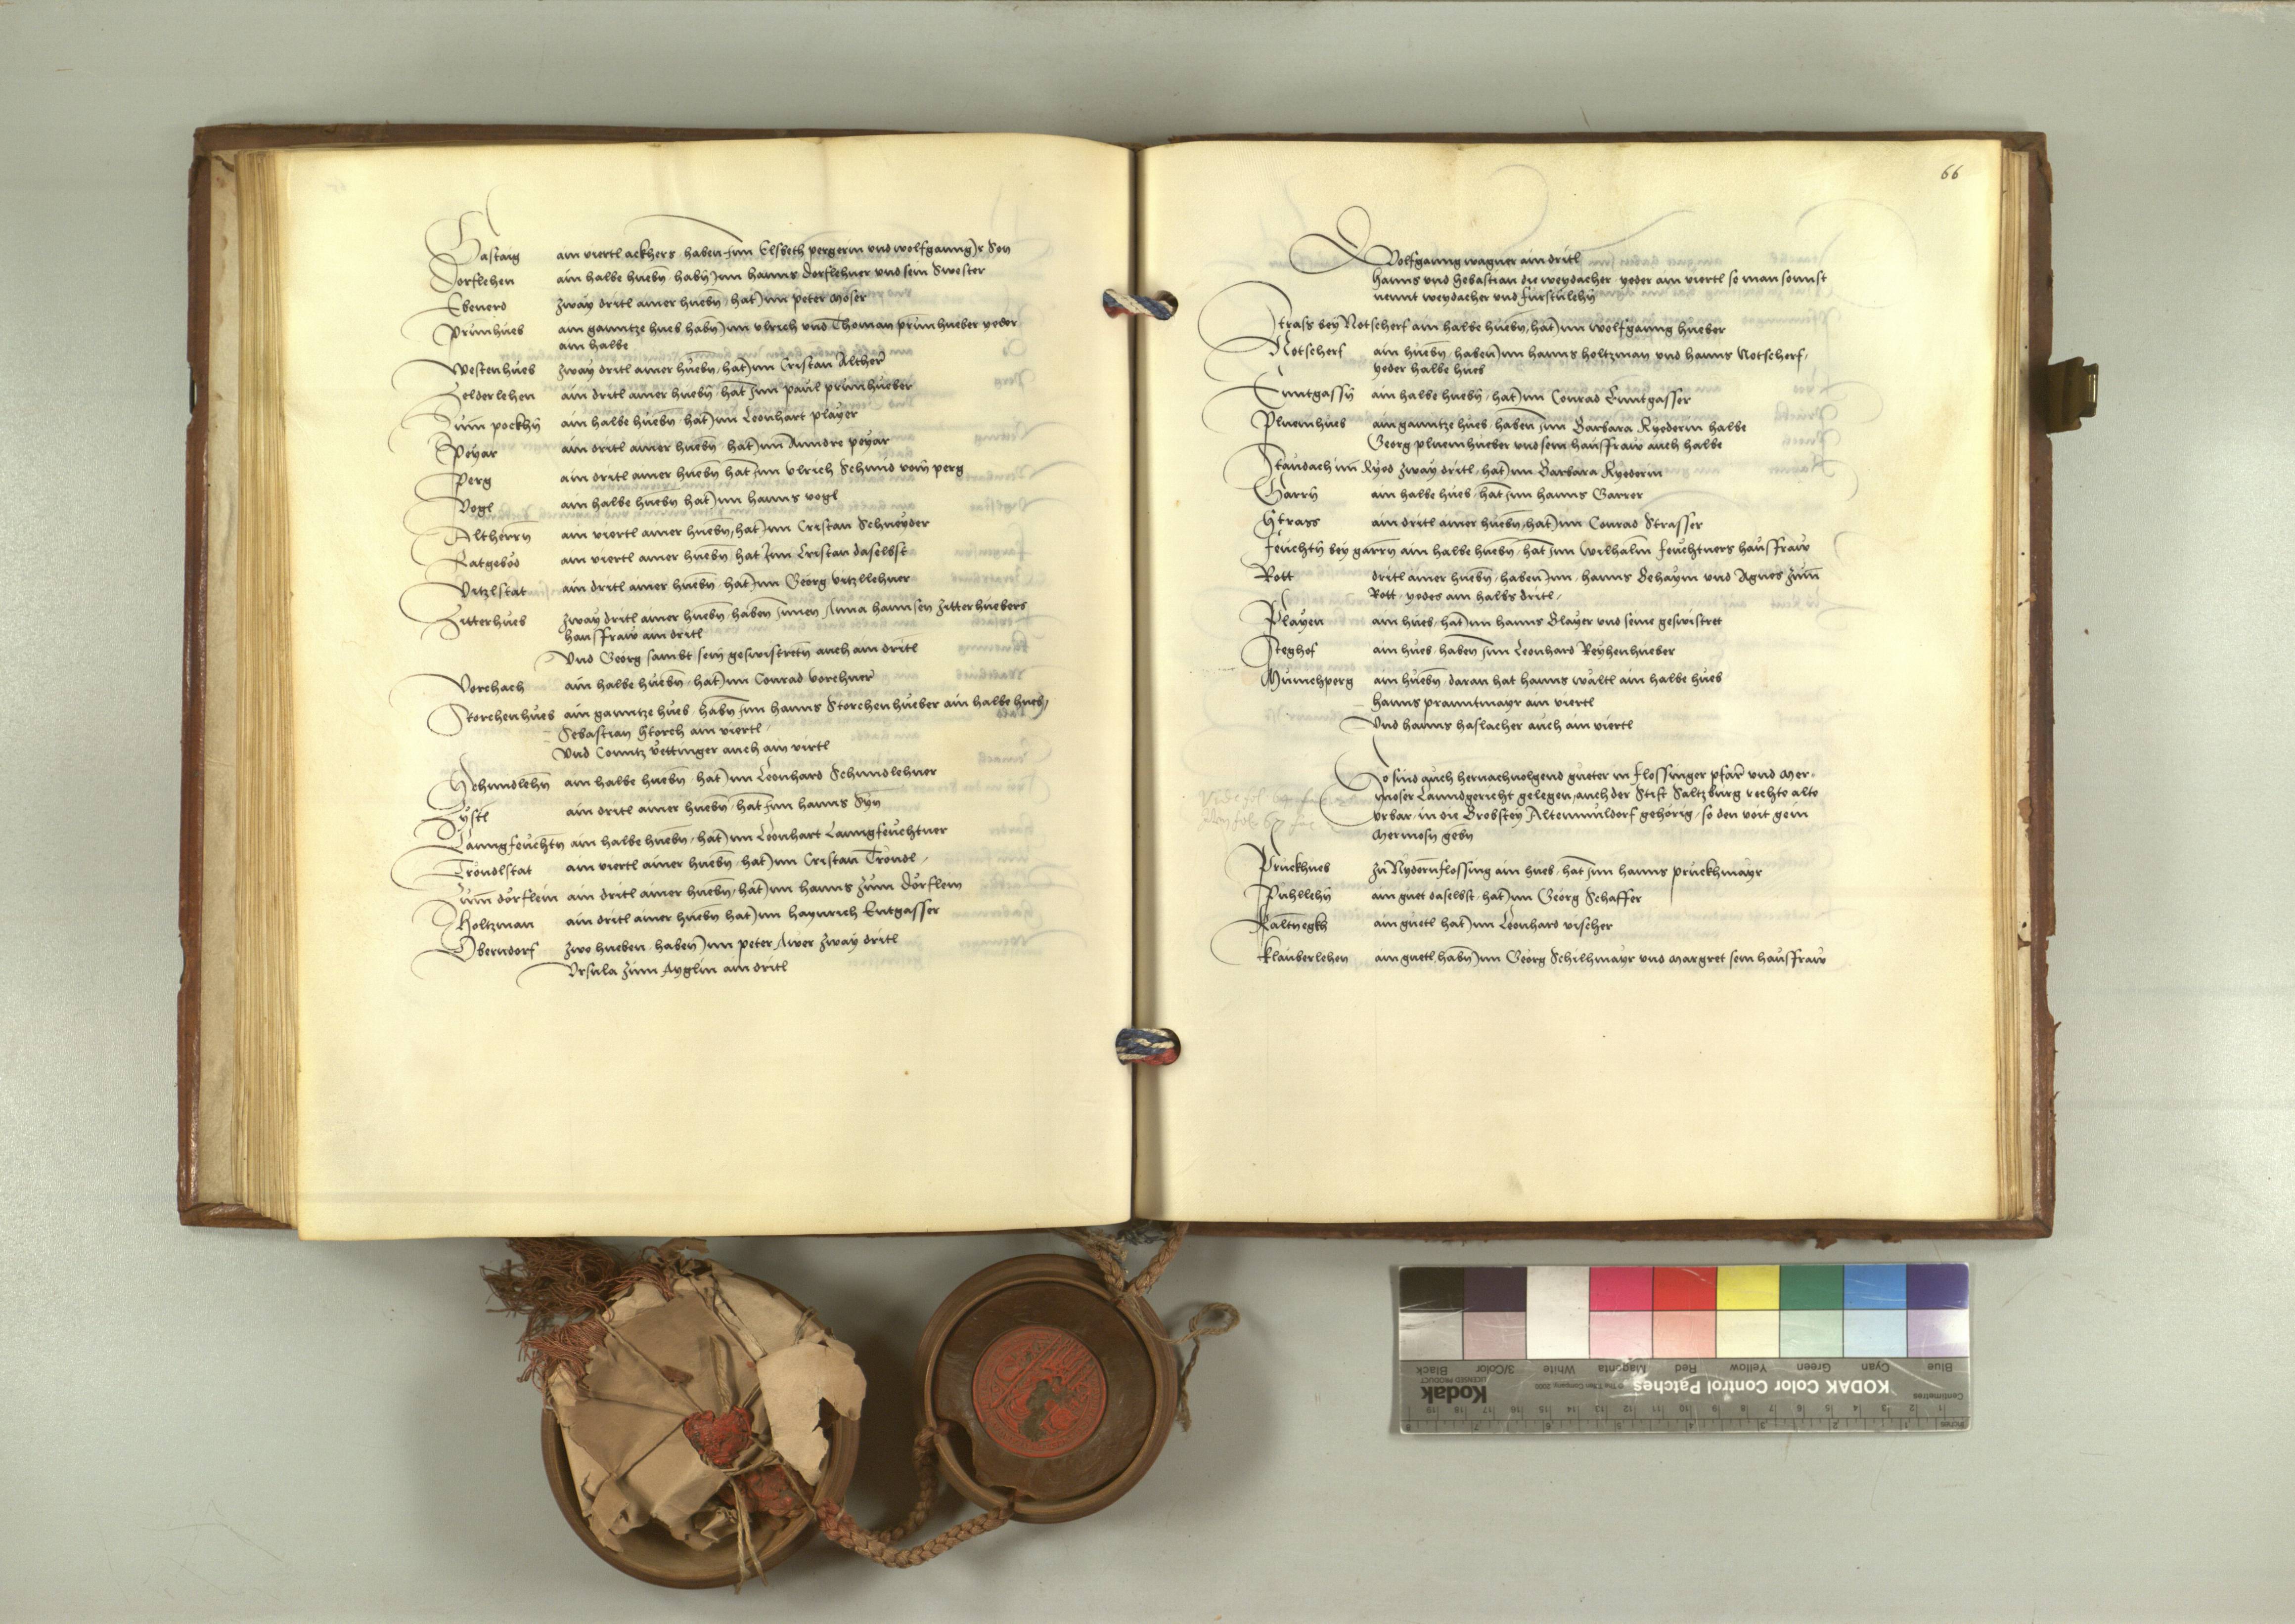 Gastaig ain viertl ackhers haben Inn Elsbeth pergerin und wolfganng Ir Son
Dorflehen ain halbe huebn habn Inn hanns Dorflehner und sein Swester
Ebenerd zway dritl ainer huebn hat Inn peter Moser
Prunhueb ain ganntze hueb habn Inn Ulrich und Thoman prunhueber yeder
ain halbe
Westenhueb zway dritl ainer huebn hat Inn Cristan Alther
Zelderlehen ain dritl ainer huebn hat Inn paul prunhueber
Zum pockhn ain halbe huebn hat Inn Leonhart player
Peyar ain dritl ainer huebn hat Inn Anndre peyar
Perg ain dritl ainer huebn hat Inn Ulrich Schmid vom perg
Vogl ain halbe huebn hat Inn hanns vogl
Altherrn ain viertl ainer huebn hat Inn Cristan Schneyder
Ratgebod ain viertl ainer huebn hat Inn Cristan daselbst
Vitzlstat ain dritl ainer huebn hat Inn Georg vitzllehner
Zitterhueb zway dritl ainer huebn haben Innen Anna hannsen Zitterhuebers
hausfraw ain dritl
Und Georg sambt sein geswistretn auch ain dritl
Vorchach ain halbe huebn hat Inn Conrad vorchner
Storchenhueb ain ganntze hueb habn Inn hanns Storchenhueber ain halbe hueb
Sebastian Storch ain viertl
Und Conntz Vettinger auch ain virtl
Schmidlehn ain halbe huebn hat Inn Leonhard Schmidlehner
Zystl ain dritl ainer huebn hat Inn hanns Syn
Lanngfeuchtn ain halbe huebn hat Inn Leonhart Lanngfeuchtner
Trondlstat ain viertl ainer huebn hat Inn Cristan Trondl
Zum dorflein ain dritl ainer huebn hat Inn hanns zum Dorflein
Holtzman ain dritl ainer huebn hat Inn haynrich Entgasser
Oberndorf zwo hueben haben Inn peter Awer zway dritl
Ursula zum Ayglin ain dritl
66
Wolfganng wagner ain dritl
Hanns und Sebastian die weydacher yeder ain viertl so man sonnst
nennt weydacher und furstnlehn
Strass bey Notscherf ain halbe huebn hat Inn wolfganng hueber
Notscherf ain huebn haben Inn hanns holtzman und hanns Notscherf
yeder halbe hueb
Enntgassn ain halbe huebn hat Inn Conrad Enntgasser
Pluemhueb ain ganntze hueb haben Inn Barbara Ryederin halbe
Georg pluemhueber und sein hausfraw auch halbe
Staudach im Ryed zway dritl hat Inn Barbara Ryederin
Garrn ain halbe hueb hat Inn hanns Garrer
Strass ain dritl ainer huebn hat Inn Conrad Strasser
Feuchtn bey garrn ain halbe huebn hat Inn Wilhalm feuchtners hausfraw
Rott dritl ainer huebn haben Inn hanns Behaym und Agnes zum
Rott yedes ain halbs dritl
Playen ain hueb hat Inn hanns Player und seine geswistret
Steghof ain hueb haben Inn Leonhard Reyhenhueber
Munichperg ain huebn daran hat hanns waltl ain halbe hueb
Hanns pranntmayr ain viertl
Und hanns haslacher auch ain viertl
So sind auch hernachvolgend gueter in flossinger pfarr und Mer-
moser Lanndgericht gelegen auch der Stift Saltzburg rechts alts
urbar in die Brobstey Altenmuldorf gehörig so den voit gein
Mermosn gebn
Pruckhueb zu Nydernflossing ain hueb hat Inn hanns pruckhmayr
Puhllehn ain guet daselbst hat Inn Georg Schaffer
Kaltnegkh ain guetl hat Inn Leonhard vischer
Klauberlehen ain guetl habn Inn Georg Schilhmayr und Margret sein hausfraw
Kodak
LICENSED PRODUCT
KODAK Color Control Patches
Blue Cyan Green Yellow Red Magenta White 3/Color Black
Centimetres
Inches